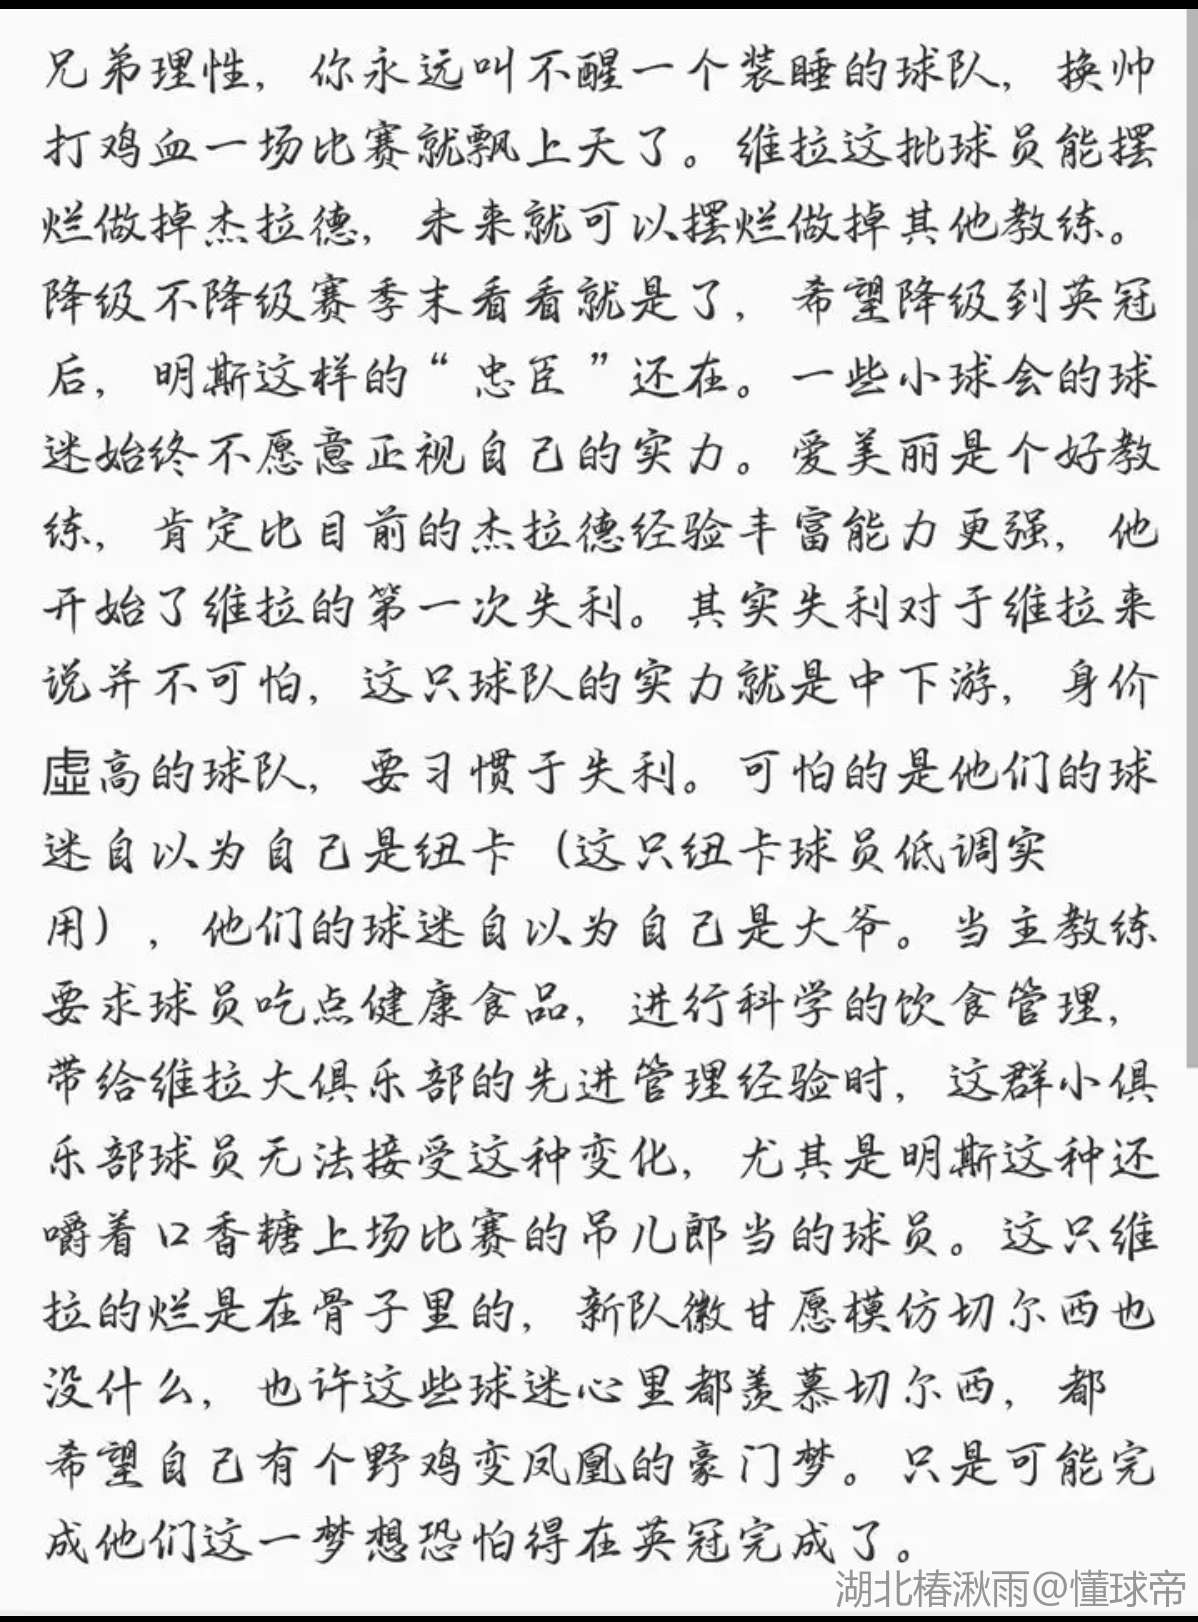 兄弟理性，你永远叫不醒一个装睡的球队，换帅
打鸡血一场比赛就飘上天了。维拉这批球员能摆
烂做掉杰拉德，未来就可以摆烂做掉其他教练。
降级不降级赛季末看看就是了，希望降级到英冠
后，明斯这样的“忠臣”还在。一些小球会的球
迷始终不愿意正视自己的实力。爱美丽是个好教
练，肯定比目前的杰拉德经验丰富能力更强，他
开始了维拉的第一次失利。其实失利对于维拉来
说并不可怕，这只球队的实力就是中下游，身价
虚高的球队，要习惯于失利。可怕的是他们的球
迷自以为自己是纽卡（这只纽卡球员低调实
用），他们的球迷自以为自己是大爷。当主教练
要求球员吃点健康食品，进行科学的饮食管理，
带给维拉大俱乐部的先进管理经验时，这群小俱
乐部球员无法接受这种变化，尤其是明斯这种还
嚼着口香糖上场比赛的吊儿郎当的球员。这只维
拉的烂是在骨子里的，新队徽甘愿模仿切尔西也
没什么，也许这些球迷心里都羡慕切尔西，都
希望自己有个野鸡变凤凰的豪门梦。只是可能完
成他们这一梦想恐怕得在英冠完成了。
湖北椿湫雨@懂球帝